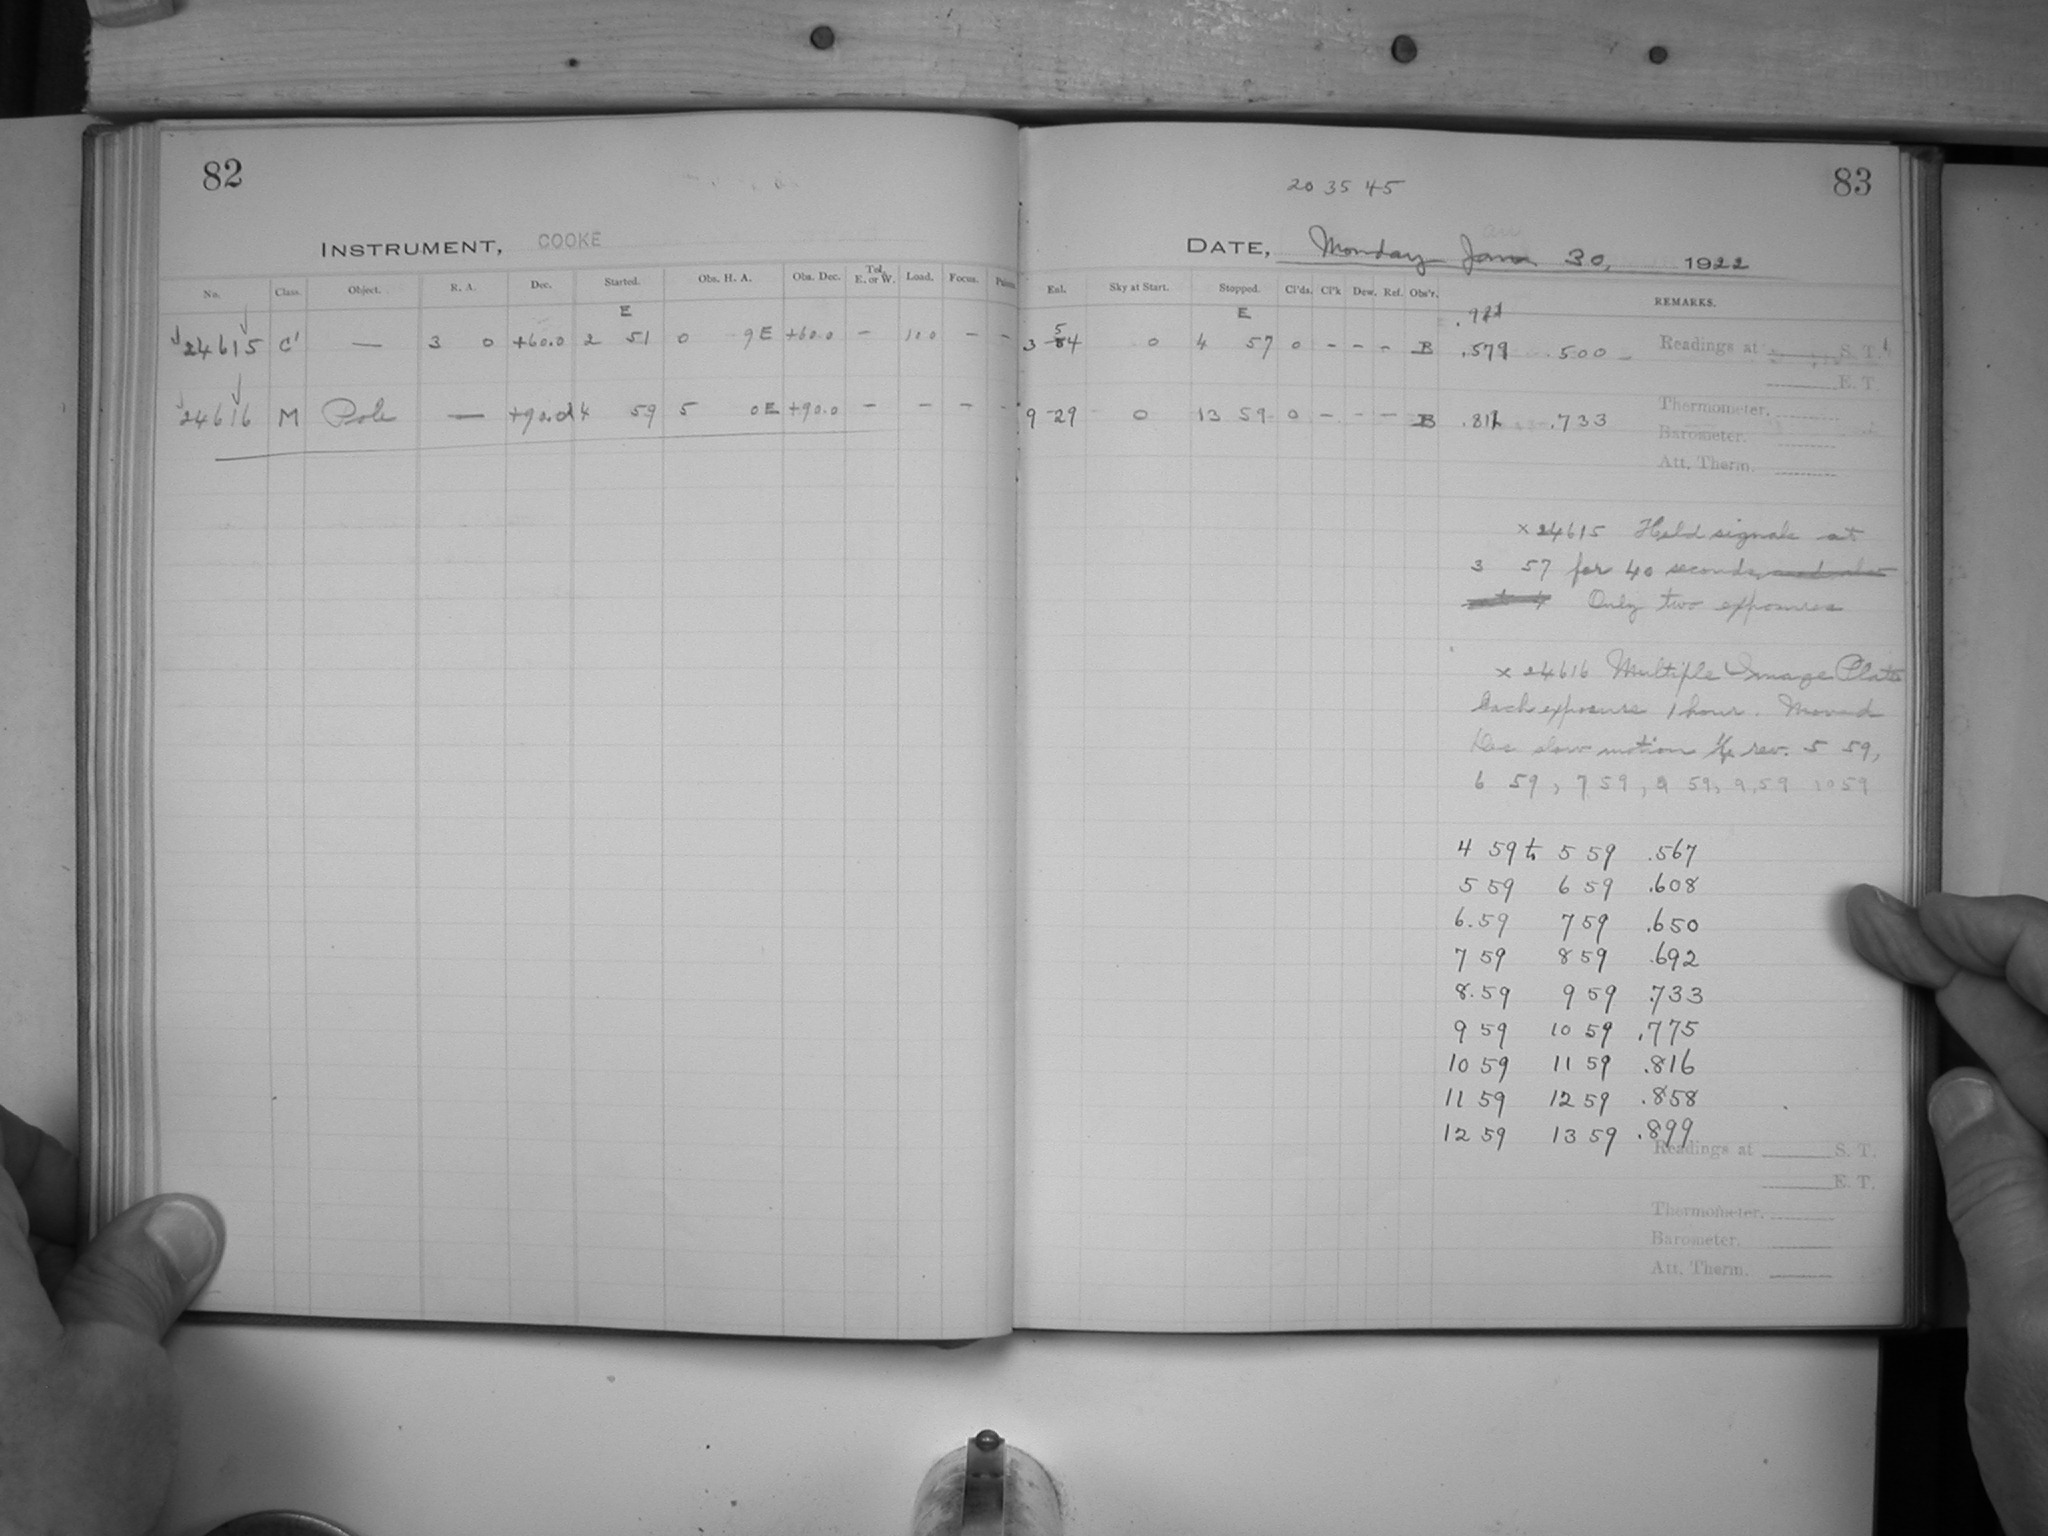 82
INSTRUMENT, COOKE
No. Class. Object. R. A. Dec. Started. Obs. H. A. Obs. Dec. Tel. E. or W. Load. Focus.
E
24615 C' — 3 0 +60.0 2 51 0 9 E +60.0 – 100 – –
24616 M Pole — +90.0 4 59 5 0 E +90.0 – – – –
20 35 45
83
DATE, Monday Jan 30, 1922
Exl. Sky at Start. Stopped. Cl'ds. Cl'k Dew. Ref. Obs'r. REMARKS.
E
3 54 0 4 57 0 – – – B .579 .500 Readings at S. T.
E. T.
9 29 0 13 59 0 – – – B .812 .733 Thermometer.
Barometer.
Att. Therm.
x 24615 Held signals at
3 57 for 40 seconds
Only two exposures
x 24616 Multiple Image Plate
Each exposure 1 hour. Moved
Dec slow motion rev. 5 59,
6 59, 7 59, 8 59, 9,59 10 59
4 59 to 5 59 .567
5 59 6 59 .608
6.59 7 59 .650
7 59 8 59 .692
8.59 9 59 .733
9 59 10 59 .775
10 59 11 59 .816
11 59 12 59 .858
12 59 13 59 .899
Readings at S. T.
E. T.
Thermometer.
Barometer.
Att. Therm.